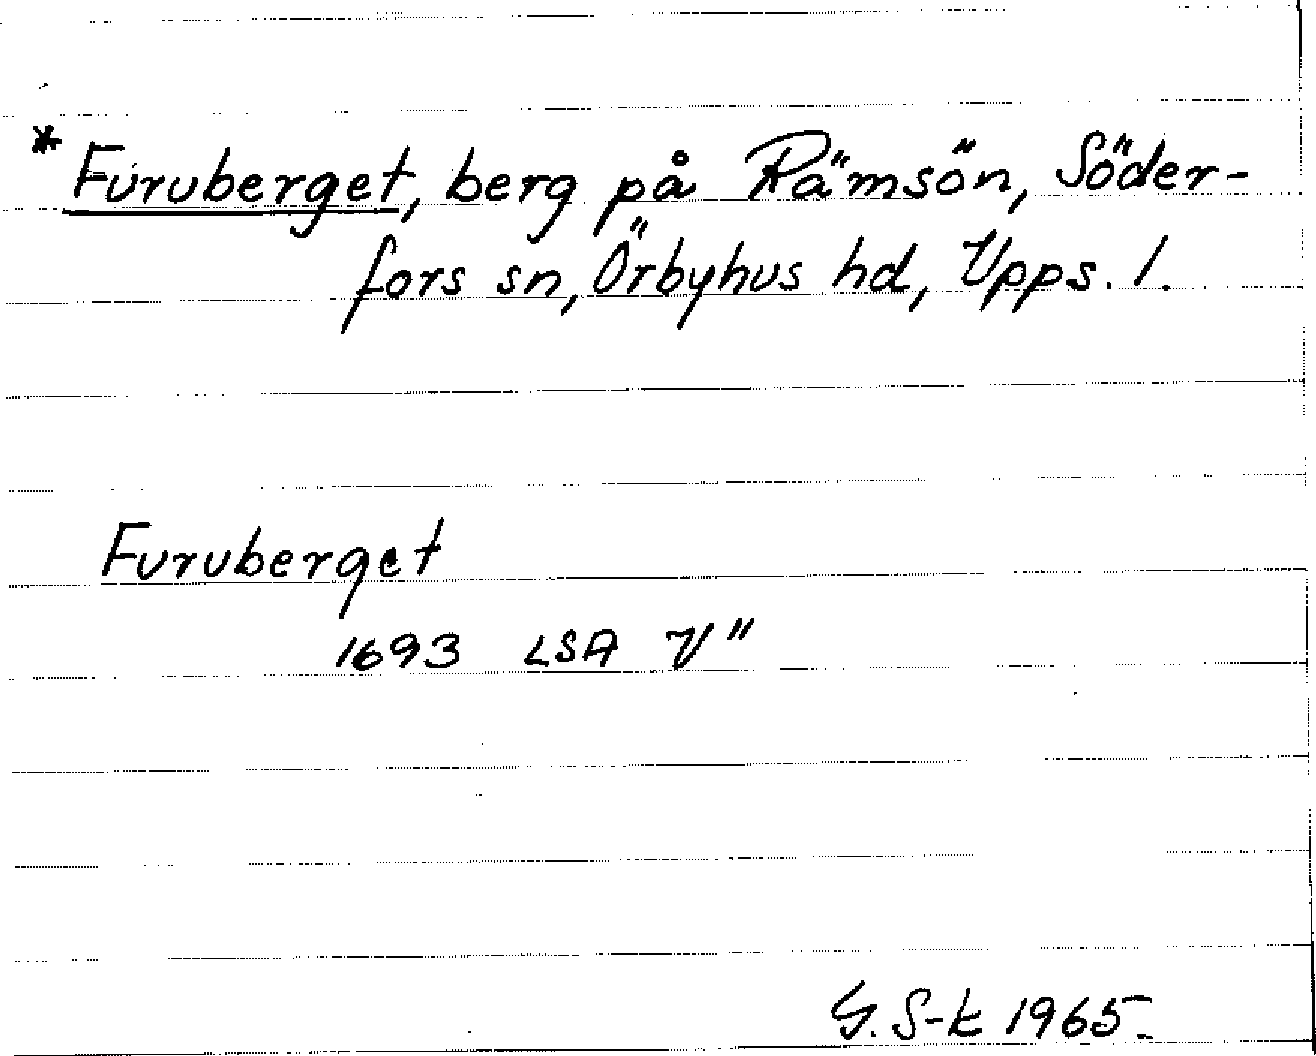 * Furuberget, berg på Rämsön, Söder-
fors sn, Örbyhus hd, Upps. l.
Furuberget
1693 LSA V"
G. S-k 1965.